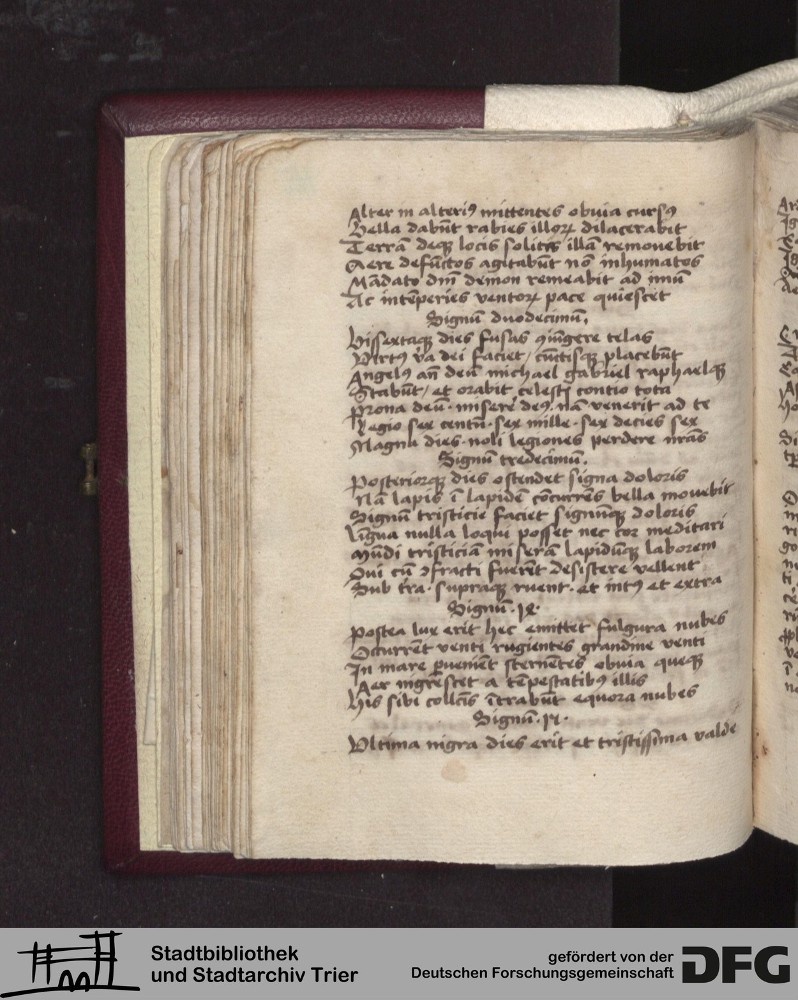 Alter in alteriꝰ mittentes obuia cursꝰ
Bella dabūt rabies illoꝝ dilacerabit
Terrā deqꝫ locis solitis illā remouebit
Aere defūctos agitabūt nō inhumatos
Mādato dnī demon remeabit ad imū
Ac intēperies ventoꝝ pace quiescet
Signū duodecimū.
Bissextaqꝫ dies fusas ꝯiūgere telas
Virtꝰ dei faciet / cūctisqꝫ placebūt
Angelꝰ an̄ deū michael gabriel raphaelqꝫ
Stabūt / et orabit celestꝭ contio tota
Prona deū · miserere deꝰ · nā venerit ad te
Regio sex centū · sex mille · sex decies sex
Magna dies · noli legiones perdere nr̄as
Signū tredecimū.
Posteriorqꝫ dies ostendet signa doloris
Nā lapis ī lapidē cōcurrēs bella mouebit
Signū tristicie faciet signūqꝫ doloris
Lingua nulla loqui posset nec cor meditari
Mūdi tristiciā miserā lapidūqꝫ laborem
Qui cū ꝯfracti fuerīt desistere vellent
Sub tr̄a · supraqꝫ ruent · et intꝰ et extra
Signū · 14 ·
Postea lux erit hec emittet fulgura nubes
Occurrēt venti rugientes grandine venti
In mare ꝑueniēt sternētes obuia queqꝫ
Aer nigrescet a tēpestatibꝰ illis
His sibi collisis ītrabūt equora nubes
Signū · 15 ·
Vltima nigra dies erit et tristissima valde
Stadtbibliothek
und Stadtarchiv Trier
gefördert von der
Deutschen Forschungsgemeinschaft
DFG